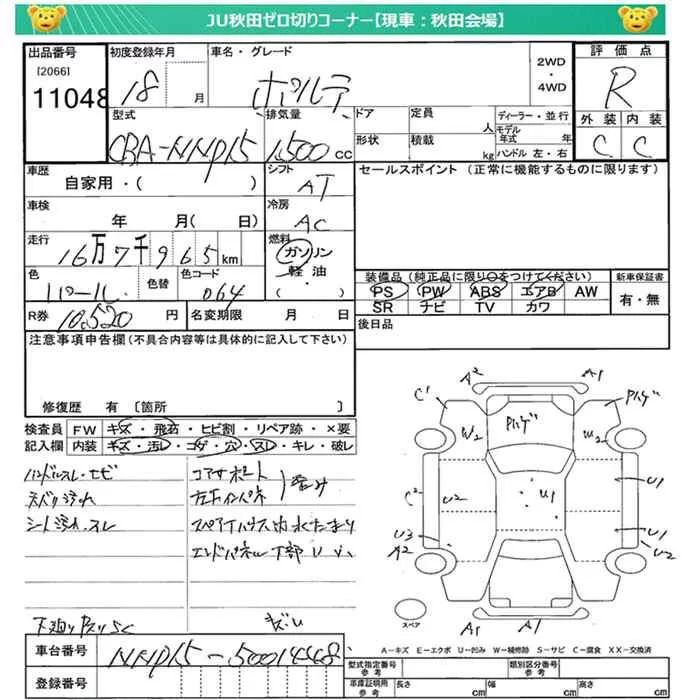 JU秋田ゼロ切りコーナー【現車：秋田会場】
出品番号
[2066]
11048
初度登録年月
18 月
車名・グレード
ポルテ
2WD
・
4WD
評価点
R
外装 内装
C C
型式
CBA-NNP15
排気量
1,500 cc
ドア
形状
定員
人
積載
kg
ディーラー・並行
モデル
年式 年
ハンドル 左・右
車歴
自家用・( )
シフト
AT
セールスポイント (正常に機能するものに限ります)
車検
年 月( 日)
冷房
AC
走行
16万7千965km
燃料
ガソリン
軽油・
( )
色
パール
色替
色コード
064
装備品 (純正品に限り○をつけてください)
PS PW ABS エアB AW
SR ナビ TV カワ
新車保証書
有・無
R券
10,520 円
名変期限 月 日
後日品
注意事項申告欄(不具合内容等は具体的に記入して下さい)
修復歴 有 〔箇所 〕
検査員
記入欄
FW キズ・飛石・ヒビ割・リペア跡・×要
内装 キズ・汚レ・コゲ・穴・スレ・キレ・破レ
ハンドルスレ・ヒビ
シート汚れ・スレ
コアサポート
スペアタイヤハウス内水たまり
エンドパネル下部
A2 A1
C1 Pハゲ
W2 Pハゲ W2
C2 U2 U1 U1
U3 U1
A2 U2
スペア
A1 A1
A－キズ E－エクボ U－凹み W－補修跡 S－サビ C－腐食 XX－交換済
車台番号
NNP15-50014448
登録番号
型式指定番号
参考
類別区分番号
参考
車庫証明用
参考
長さ cm 幅 cm 高さ cm